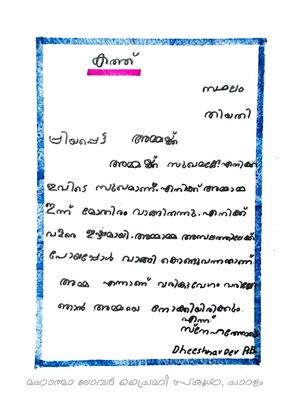 കത്ത്
സ്ഥലം
തിയതി
പ്രിയപ്പെട്ട അമ്മയ്ക്ക്
അമ്മയ്ക്ക് സുഖമല്ലേ. എനിക്ക്
ഇവിടെ സുഖമാണ്. എനിക്ക് അമ്മാമ്മ
ഇന്ന് മോതിരം വാങ്ങിതന്നു. എനിക്ക്
വളരെ ഇഷ്ടമായി. അമ്മാമ്മ അമ്പലത്തിലേക്ക്
പോയപ്പോൾ വാങ്ങി കൊണ്ടുവന്നതാണ്
അമ്മ എന്നാണ് വരിക വേഗം വരില്ലേ
ഞാൻ അമ്മയെ നോക്കിയിരിക്കും
എന്ന്
സ്നേഹത്തോടെ
Dheeshnav Dev P.B
മഹാത്മാ ലോവർ പ്രൈമറി സ്കൂൾ, പൊറ്റശ്ശേരി